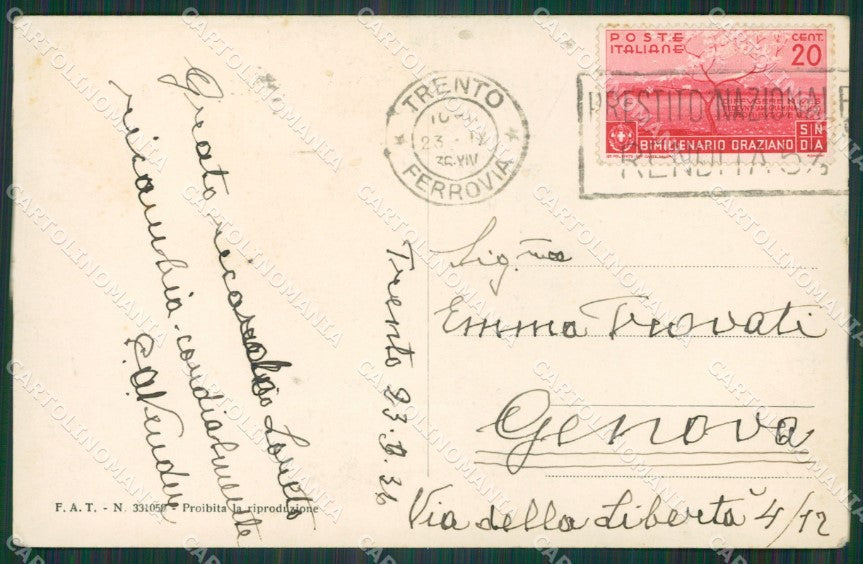 POSTE ITALIANE
CENT. 20
BIMILLENARIO ORAZIANO
SIN DIA
TRENTO
FERROVIA
23
PRESTITO NAZIONALE
RENDITA 5%
Grato ricordo Loreto
ricambia cordialmente
Trento 23.9.36
Sig.na
Emma Trovati
Genova
Via della Libertà 4/12
F. A. T. - N. 331059 - Proibita la riproduzione
CARTOLINOMANIA